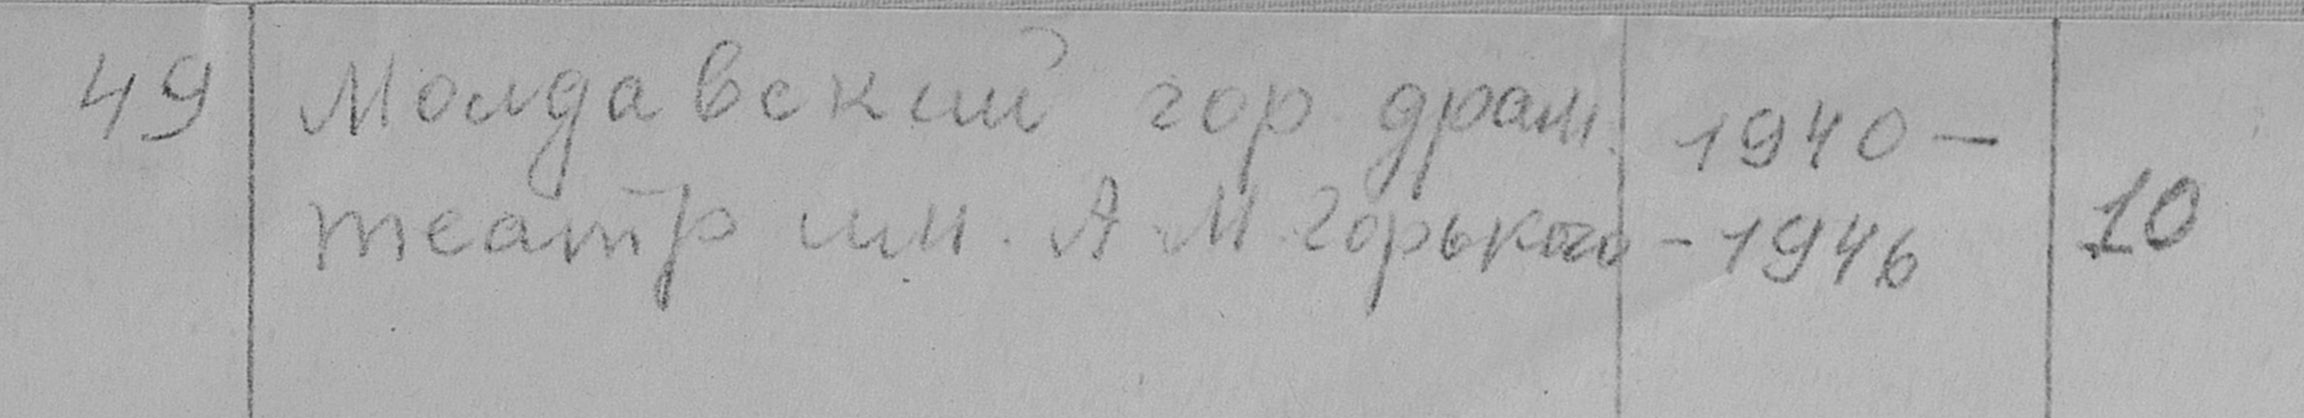 49 Молдавский гор драм. 1940 –
театр им. А.М. Горького - 1946 10